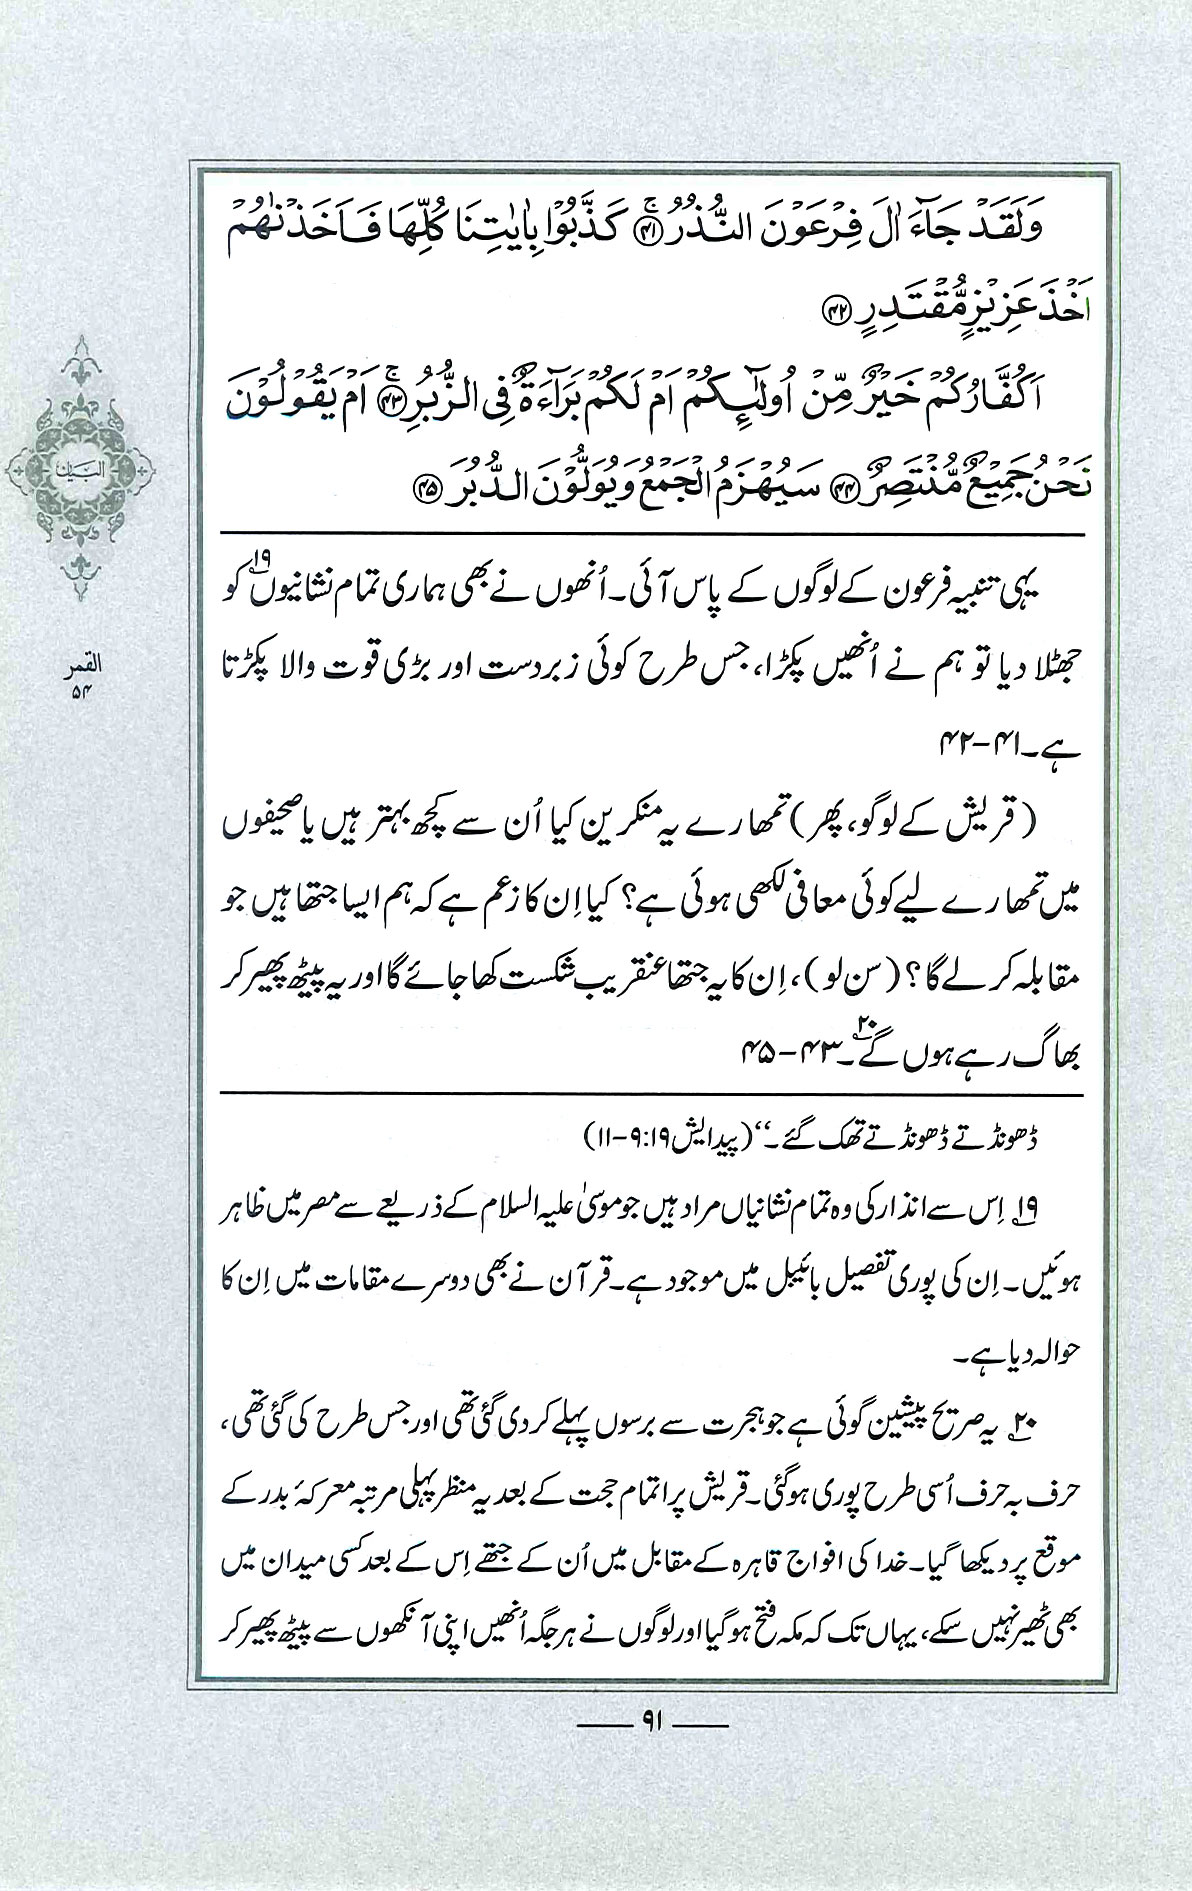 وَلَقَدْ جَآءَ اٰلَ فِرْعَوْنَ النُّذُرُ ﴿۴۱﴾ۚ كَذَّبُوْا بِاٰيٰتِنَا كُلِّهَا فَاَخَذْنٰهُمْ
اَخْذَ عَزِيْزٍ مُّقْتَدِرٍ ﴿۴۲﴾
اَكُفَّارُكُمْ خَيْرٌ مِّنْ اُولٰٓئِكُمْ اَمْ لَكُمْ بَرَآءَةٌ فِى الزُّبُرِ ﴿۴۳﴾ۚ اَمْ يَقُوْلُوْنَ
نَحْنُ جَمِيْعٌ مُّنْتَصِرٌ ﴿۴۴﴾ سَيُهْزَمُ الْجَمْعُ وَيُوَلُّوْنَ الدُّبُرَ ﴿۴۵﴾
البیان
القمر
۵۴
یہی تنبیہ فرعون کے لوگوں کے پاس آئی۔ اُنھوں نے بھی ہماری تمام نشانیوں۱۹ کو
جھٹلا دیا تو ہم نے اُنھیں پکڑا، جس طرح کوئی زبردست اور بڑی قوت والا پکڑتا
ہے۔ ۴۱-۴۲
(قریش کے لوگو، پھر) تمھارے یہ منکرین کیا اُن سے کچھ بہتر ہیں یا صحیفوں
میں تمھارے لیے کوئی معافی لکھی ہوئی ہے؟ کیا اِن کا زعم ہے کہ ہم ایسا جتھا ہیں جو
مقابلہ کر لے گا؟ (سن لو)، اِن کا یہ جتھا عنقریب شکست کھا جائے گا اور یہ پیٹھ پھیر کر
بھاگ رہے ہوں گے۲۰۔ ۴۳-۴۵
ڈھونڈتے ڈھونڈتے تھک گئے۔‘‘ (پیدایش ۱۹: ۹-۱۱)
۱۹ اِس سے انذار کی وہ تمام نشانیاں مراد ہیں جو موسیٰ علیہ السلام کے ذریعے سے مصر میں ظاہر
ہوئیں۔ اِن کی پوری تفصیل بائیبل میں موجود ہے۔ قرآن نے بھی دوسرے مقامات میں اِن کا
حوالہ دیا ہے۔
۲۰ یہ صریح پیشین گوئی ہے جو ہجرت سے برسوں پہلے کر دی گئی تھی اور جس طرح کی گئی تھی،
حرف بہ حرف اُسی طرح پوری ہو گئی۔ قریش پر اتمام حجت کے بعد یہ منظر پہلی مرتبہ معرکۂ بدر کے
موقع پر دیکھا گیا۔ خدا کی افواج قاہرہ کے مقابل میں اُن کے جتھے اِس کے بعد کسی میدان میں
بھی ٹھیر نہیں سکے، یہاں تک کہ مکہ فتح ہو گیا اور لوگوں نے ہر جگہ اُنھیں اپنی آنکھوں سے پیٹھ پھیر کر
۹۱